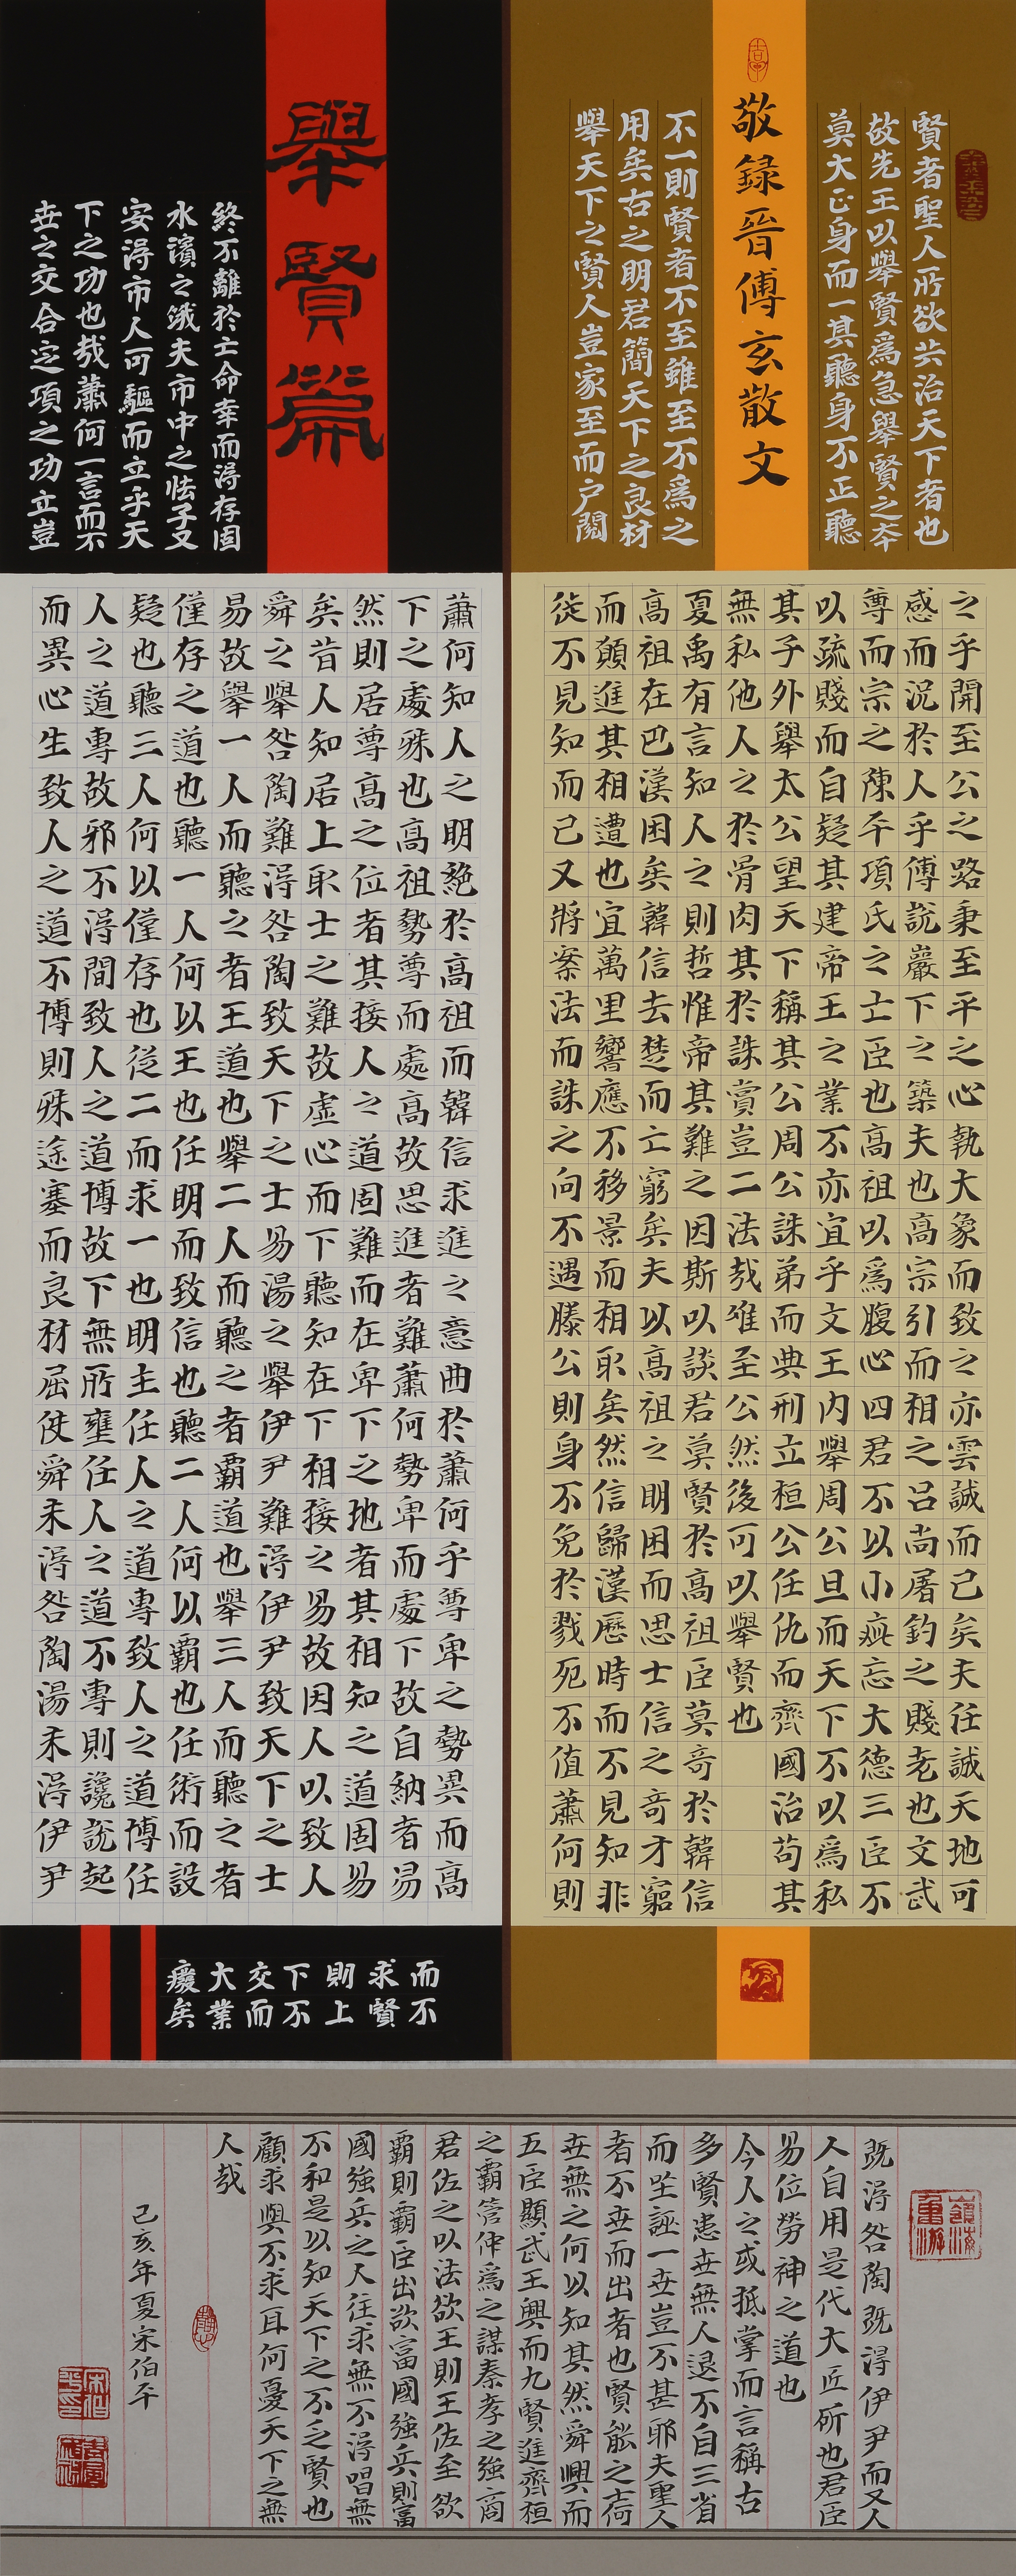 賢者聖人所欲共治天下者也
故先王以舉賢爲急舉賢之本
莫大正身而一其聽身不正聽
敬録晉傅玄散文
不一則賢者不至雖至不爲之
用矣古之明君簡天下之良材
舉天下之賢人豈家至而户閲
之乎開至公之路秉至平之心執大象而致之亦雲誠而已矣夫任誠天地可
感而況於人乎傅説巖下之築夫也高宗引而相之吕尚屠釣之賤老也文武
尊而宗之陳平項氏之士臣也高祖以爲腹心四君不以小疵忘大德三臣不
以疏賤而自疑其建帝王之業不亦宜乎文王内舉周公旦而天下不以爲私
其子外舉太公望天下稱其公周公誅弟而典刑立桓公任仇而齊國治苟其
無私他人之於骨肉其於誅賞豈二法哉唯至公然後可以舉賢也
夏禹有言知人之則哲惟帝其難之因斯以談君莫賢於高祖臣莫奇於韓信
高祖在巴漢困矣韓信去楚而亡窮矣夫以高祖之明困而思士信之奇才窮
而願進其相遭也宜萬里響應不移景而相取矣然信歸漢歷時而不見知非
徒不見知而已又將案法而誅之向不遇滕公則身不免於戮死不值蕭何則
舉賢篇
終不離於亡命幸而得存固
水濱之餓夫市中之怯子又
安得市人可驅而立乎天
下之功也哉蕭何一言而不
世之交合定項之功立豈
蕭何知人之明絶於高祖而韓信求進之意曲於蕭何乎尊卑之勢異而高
下之處殊也高祖勢尊而處高故思進者難蕭何勢卑而處下故自納者易
然則居尊高之位者其接人之道固難而在卑下之地者其相知之道固易
矣昔人知居上取士之難故虛心而下聽知在下相接之易故因人以致人
舜之舉咎陶難得咎陶致天下之士易湯之舉伊尹難得伊尹致天下之士
易故舉一人而聽之者王道也舉二人而聽之者霸道也舉三人而聽之者
僅存之道也聽一人何以王也任明而致信也聽二人何以霸也任術而設
疑也聽三人何以僅存也從二而求一也明主任人之道專致人之道博任
人之道專故邪不得間致人之道博故下無所壅任人之道不專則讒説起
而異心生致人之道不博則殊途塞而良材屈使舜未得咎陶湯未得伊尹
而不
求賢
則上
下不
交而
大業
廢矣
既得咎陶既得伊尹而又人
人自用是代大匠斫也君臣
易位勞神之道也
今人之或抵掌而言稱古
多賢患世無人退不自三省
而坐誣一世豈不甚耶夫聖人
者不世而出者也賢能之士何
世無之何以知其然舜興而
五臣顯武王興而九賢進齊桓
之霸管仲爲之謀秦孝之強商
君佐之以法欲王則王佐至欲
霸則霸臣出欲富國強兵則富
國強兵之人往求無不得唱無
不和是以知天下之不乏賢也
顧求與不求耳何憂天下之無
人哉
己亥年夏宋伯平